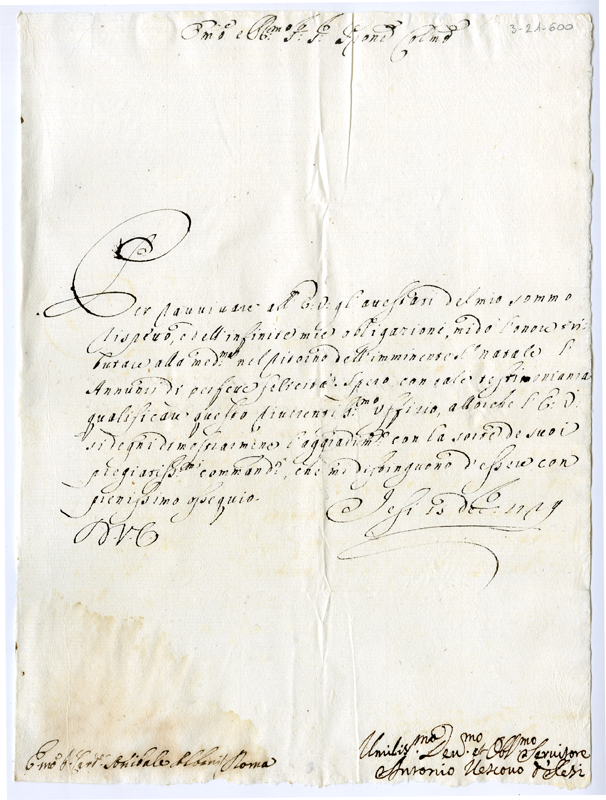 3-21-600
Em͂o e R͂mo Sr. Sr. P͂rone Colmo
Per ravvivare all' E.V. gl' attestati del mio sommo
rispetto, e dell' infinite mie obligazioni, mi dò l'onore
alla medma nel ritorno dell' imminente S. Natale l'
Annunzi di perfette felicità. Spero, con tale testimonianza
qualificare questo riverentismo uffizio, allorche l' E. V.
si degni di mostrarmene l'aggradimto con la sorte de suoi
pregiatissmi commandi, che mi distinguono d'essere con
pienissimo ossequio.
Jesi 13 Dbre
D V E
Umilissmo Devmo et Obblmo Servitore
Antonio Vescovo d'Jesi
Emo Sr Card. Annibale Albani Roma